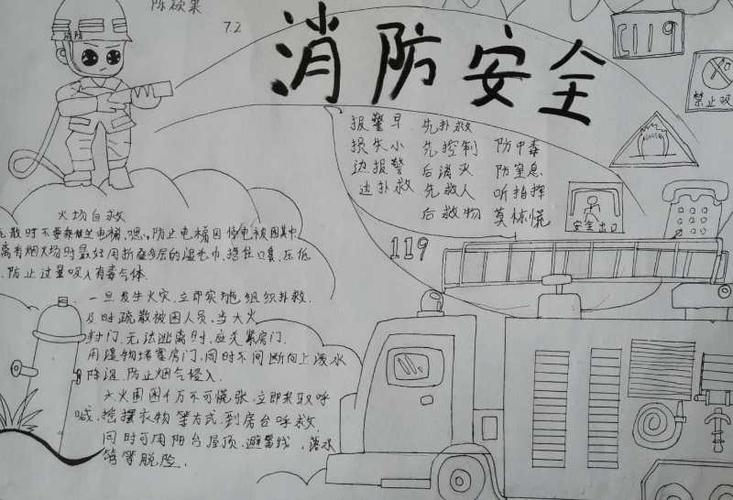 陈硕果
7.2
消防安全
119
禁止吸
消防
报警早 先扑救
损失小 先控制 防中毒
边报警 后满灭 防窒息
边扑救 先救人 听指挥
后救物 莫惊慌
安全出口
119
火场自救
散时不要乘坐电梯,防止电梯因停电被困其中
离有烟火场时最好用折叠多层的湿毛巾,捂住口鼻,压低
,防止过量吸入有毒气体.
一旦发生火灾,立即实施组织扑救.
及时疏散被困人员,当大火
封门,无法逃离时,应关紧房门.
用湿物堵塞房门,同时不间断向上泼水
降温,防止烟气侵入.
火火围困千万不可慌张,立即采取呼
喊,抢摆衣物等方式,到房台呼救.
同时可用阳台屋顶,避雷线,落水
管等脱险.